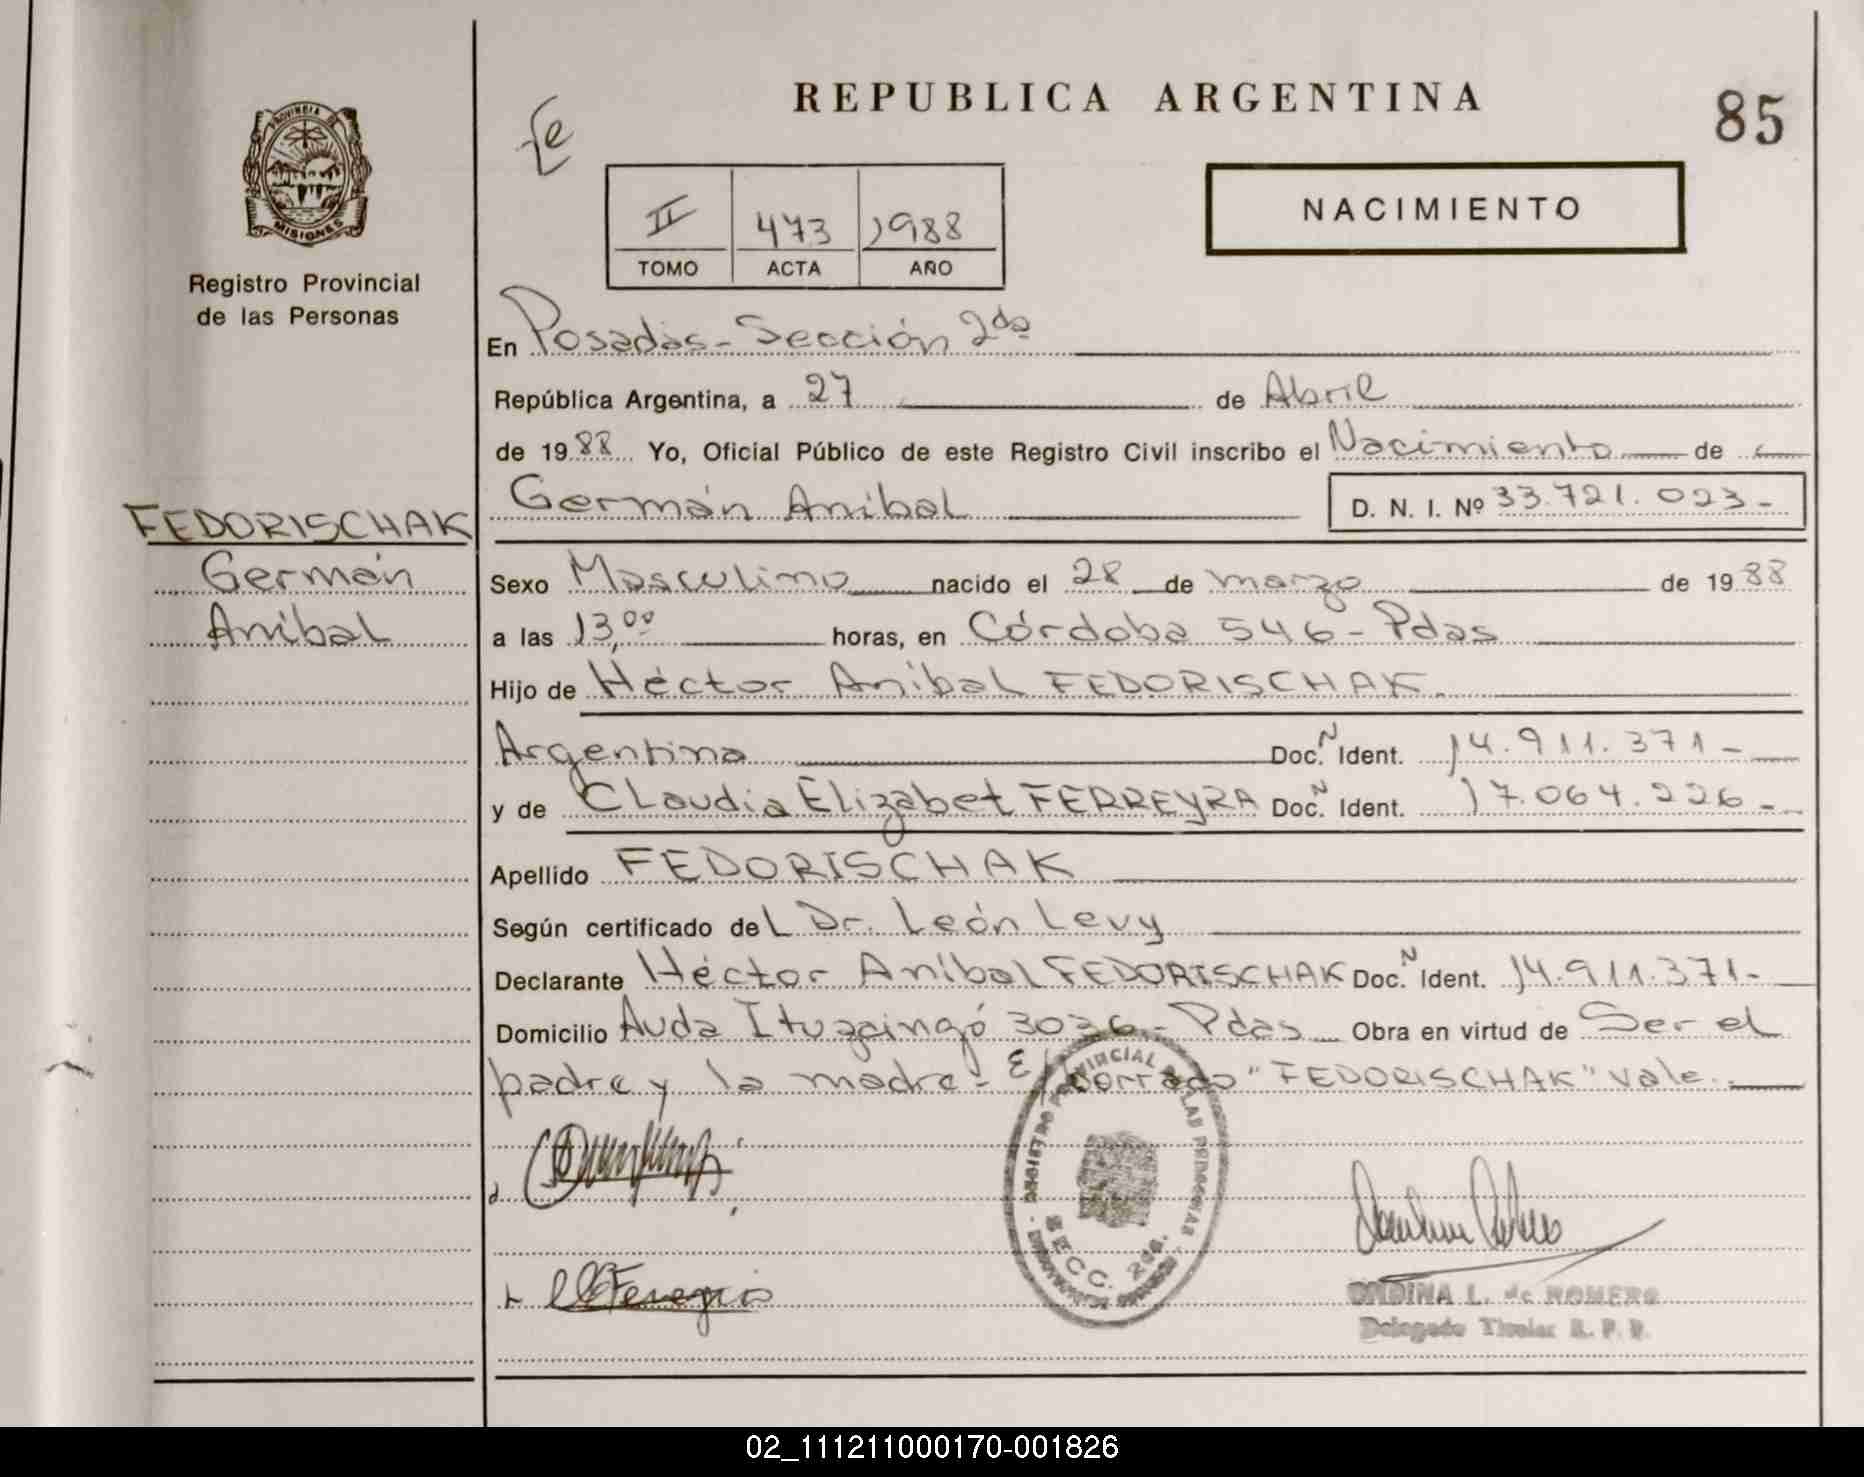 REPUBLICA ARGENTINA
85
PROVINCIA DE
MISIONES
Registro Provincial
de las Personas
II 473 1988
TOMO ACTA AÑO
NACIMIENTO
En Posadas - Sección 2da
República Argentina, a 27 de Abril
de 1988 Yo, Oficial Público de este Registro Civil inscribo el Nacimiento de
Germán Aníbal D. N. I. Nº 33.721.023-
FEDORISCHAK
Germán
Aníbal
Sexo Masculino nacido el 28 de marzo de 1988
a las 13,00 horas, en Córdoba 546 - Pdas
Hijo de Héctor Aníbal FEDORISCHAK.
Argentina Doc. N Ident. 14.911.371-
y de Claudia Elizabet FERREYRA Doc. N Ident. 17.064.226-
Apellido FEDORISCHAK
Según certificado del Dr. León Levy
Declarante Héctor Aníbal FEDORISCHAK Doc. N Ident. 14.911.371-
Domicilio Avda Ituzaingó 3026 - Pdas Obra en virtud de Ser el
padre y la madre - E/borrado "FEDORISCHAK" vale.
REGISTRO PROVINCIAL DE LAS PERSONAS
SECC. 2da.
ONDINA L. de ROMERO
Delegado Titular R. P. P.
02_111211000170-001826